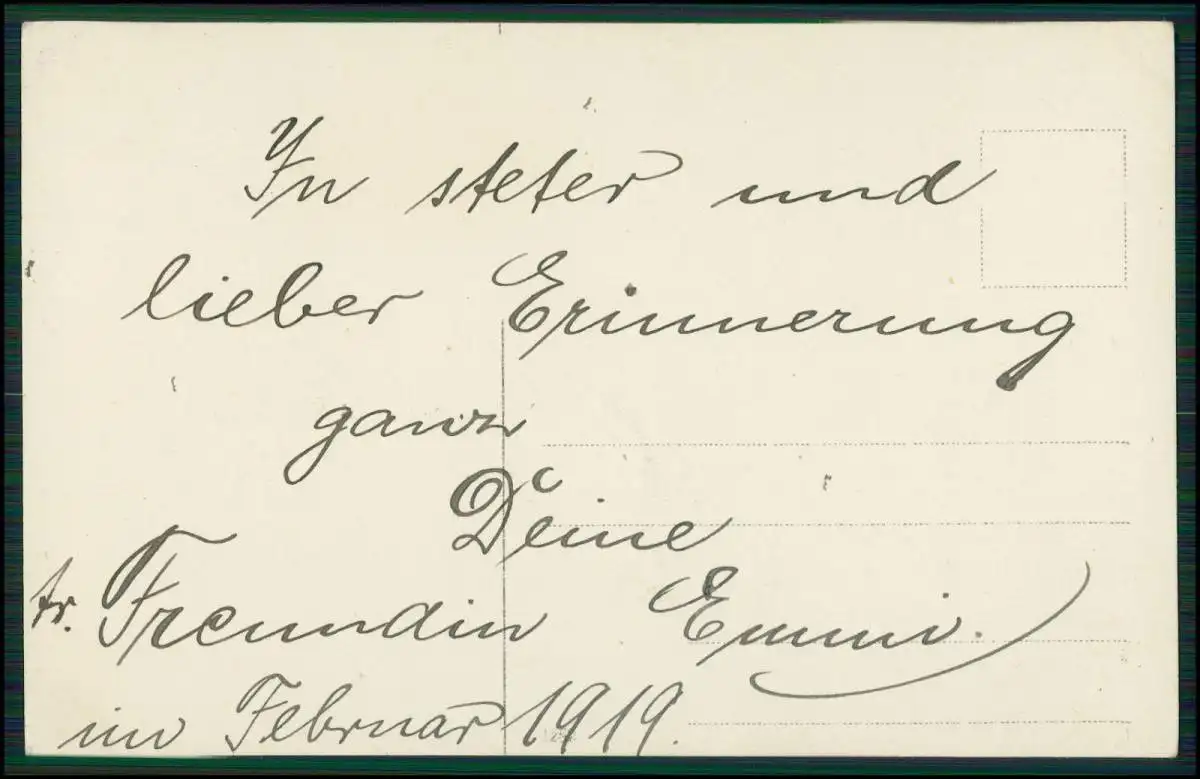 In steter und
lieber Erinnerung
ganz
Deine
tr. Freundin Emmi.
im Februar 1919.